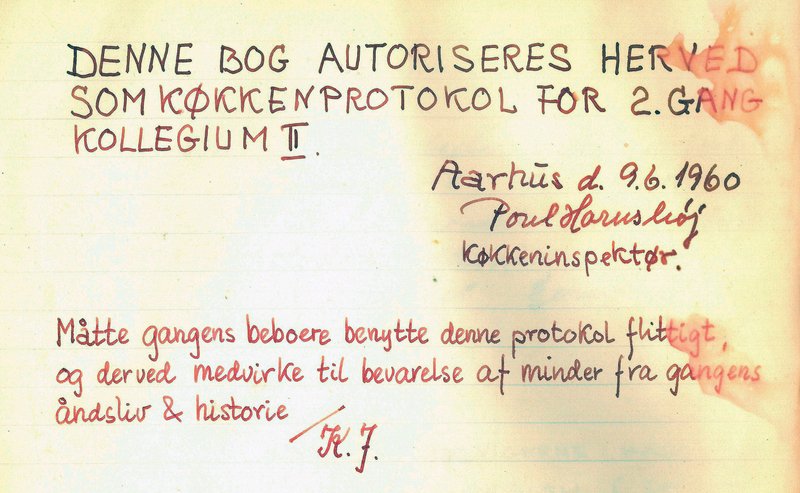 DENNE BOG AUTORISERES HERVED
SOM KØKKENPROTOKOL FOR 2. GANG
KOLLEGIUM II.
Aarhus d. 9.6.1960
Poul Harnshøj
KØKKeninspektør.
Måtte gangens beboere benytte denne protokol flittigt,
og derved medvirke til bevarelse af minder fra gangens
åndsliv & historie
/K.J.